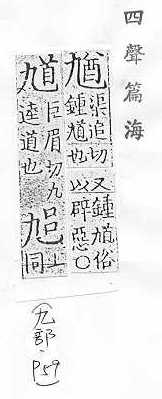 四聲篇海
渠追切
鍾馗也
又鍾馗俗
以辟惡○
馗
巨眉切九
逵道也
上同
(九部.P59)